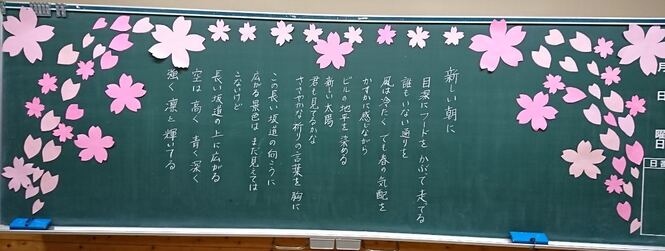 新しい朝に
目深にフードを かぶって 走ってる
誰もいない通りを
風は冷たく でも春の気配を
かすかに感じながら
ビルの地平を 染める
新しい太陽
君も見てるかな
ささやかな 祈りの言葉を 胸に
この長い坂道の 向こうに
広がる景色は まだ見えては
こないけど
長い坂道の 上に広がる
空は 高く 青く 深く
強く 凛と 輝いてる
月
日
曜日
日直